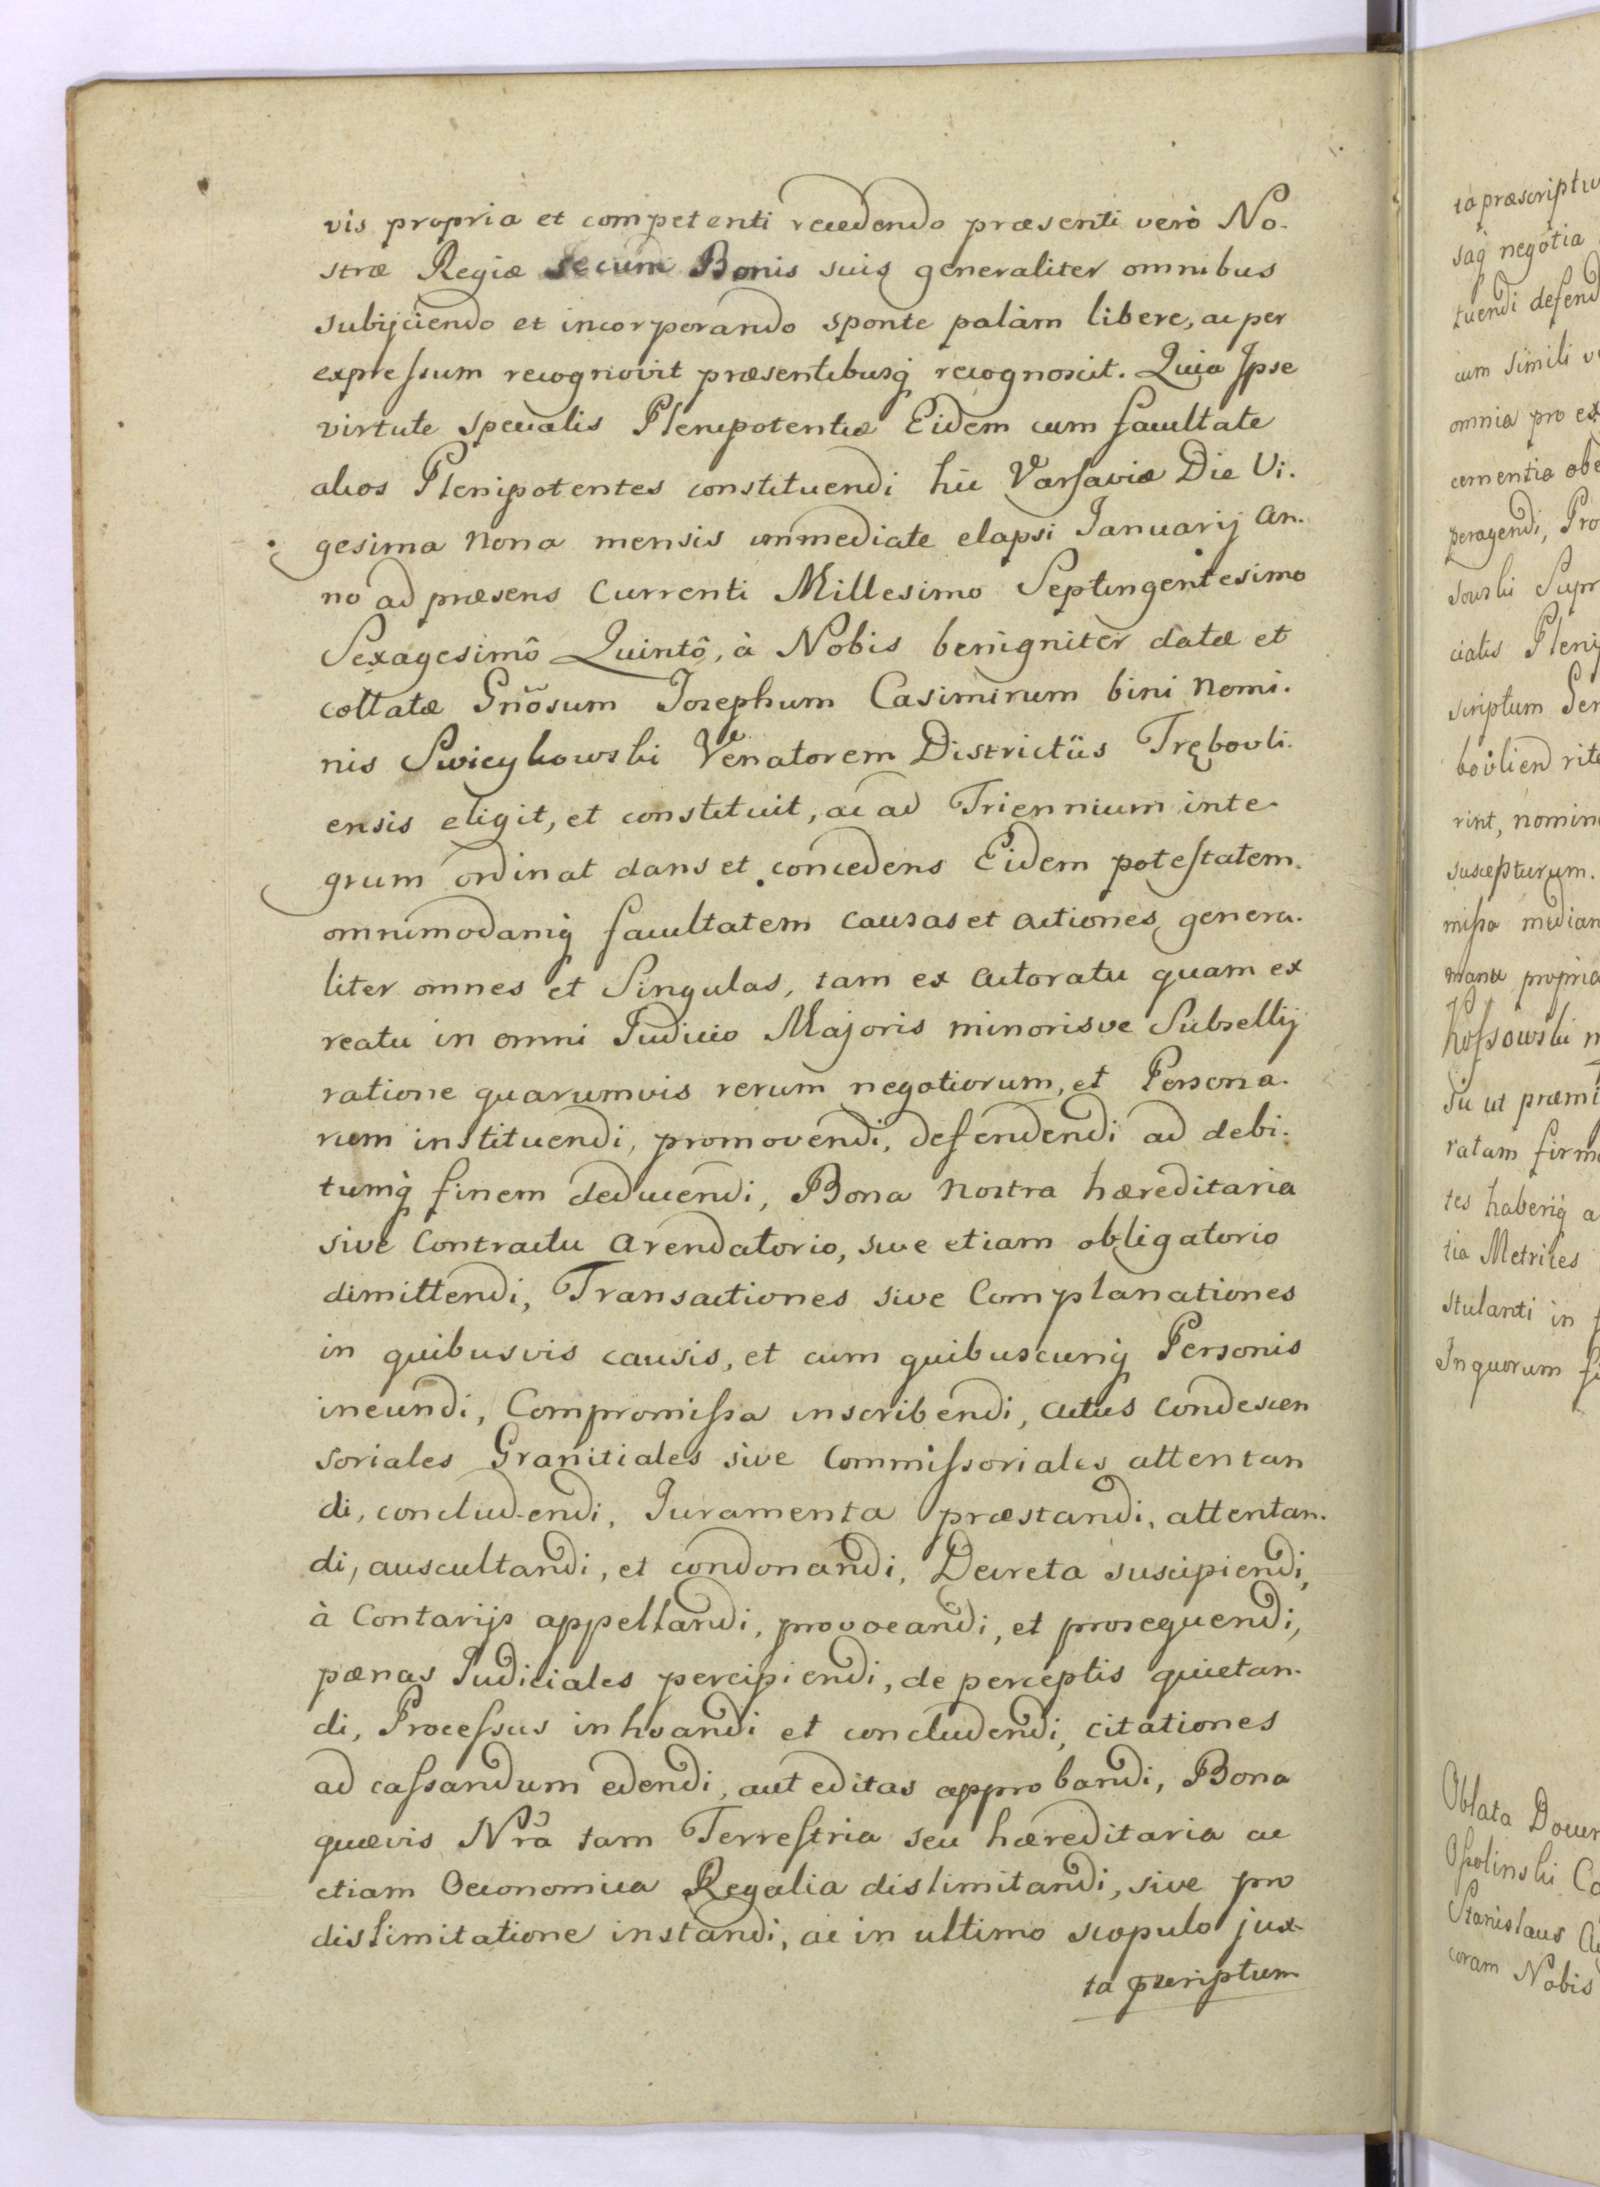 vis propria et competenti recedendo præsenti verò No-
stræ Regiæ Secum Bonis suisq generaliter omnibus
subijciendo et incorporando sponte palàm libere, ac per
expressum recognovit præsentibusq recognoscit. Quia Ipse
virtute specialis Plenipotentiæ Eidem cum facultate
alios Plenipotentes constituendi hic Varsaviæ Die Vi-
gesima nona mensis immediate elapsi Januarij An-
no ad præsens Currenti Millesimo Septingentesimo
Sexagesimô Quintô, à Nobis benigniter datæ et
collatæ Gnõsum Josephum Casimirum bini nomi-
nis Swieykowski Venatorem Districtûs Trębovli-
ensis eligit, et constituit, ac ad Triennium inte-
grum ordinat dans et concedens Eidem potestatem
omnimodamq facultatem causas et actiones genera-
liter omnes et Singulas, tam ex actoratu quam ex
reatu in omni Judicio Majoris minorisve Subsellij
ratione quarumvis rerum negotiorum, et Persona-
rum instituendi, promovendi, defendendi ad debi-
tumq finem deducendi, Bona nostra hæreditaria
sive Contractu arendatorio, sive etiam obligatorio
dimittendi, Transactiones sive Complanationes
in quibusvis causis, et cum quibuscunq Personis
ineundi, Compromissa inscribendi, actus Condescen
soriales Granitiales sive Commissoriales attentan
di, concludendi, Juramenta præstandi, attentan-
di, auscultandi, et condonandi, Decreta suscipiendi,
à Contarijs appellandi, provocandi, et prosequendi,
pænas Judiciales percipiendi, de perceptis quietan-
di, Processus inhoandi et concludendi, citationes
ad cassandum edendi, aut editas approbandi, Bona
quævis Nrã tam Terrestria seu hæreditaria ac
etiam Oeconomica Regalia dislimitandi, sive pro
dislimitatione instandi, ac in ultimo scopulo jux-
ta pscriptum
ta præscriptu
saq negotia
tuendi defend
cum simili v
omnia pro ex
cementia obe
peragendi, Pro
sowski Supr
cialis Pleni
scriptum Ger
boŭliend rite
rint, nomin
suscepturum.
missa median
manu propria
Kossowski m
du ut præmi
ratam firm
tes haberiq a
tia Metrices
stulanti in f
In quorum fi
Oblata Docum
Ossolinski Ca
Stanislaus A
coram Nobis